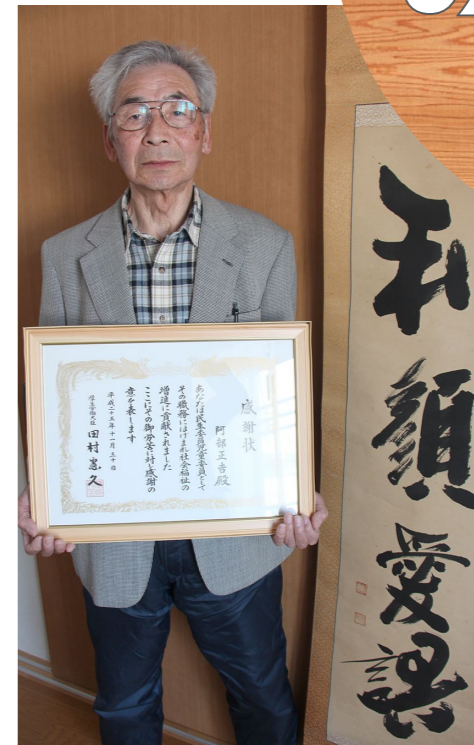 感謝状
阿部正吉殿
あなたは民生委員児童委員として
その職務にはげまれ社会福祉の
増進に貢献されました
ここにその御労苦に対し感謝の
意を表します
平成二十五年十一月三十日
厚生労働大臣 田村憲久
和顔愛語